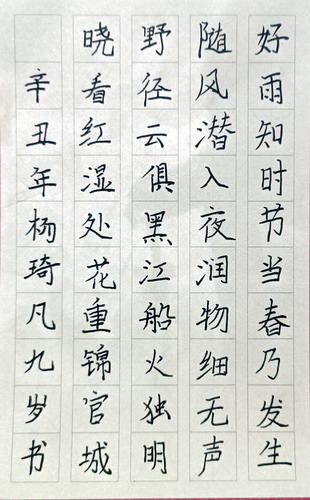 好雨知时节当春乃发生
随风潜入夜润物细无声
野径云俱黑江船火独明
晓看红湿处花重锦官城
辛丑年杨琦凡九岁书